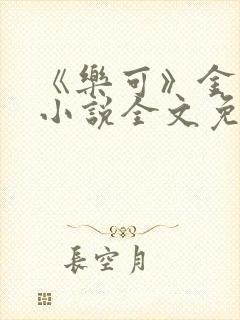 《樂可》金
小說全文免
長空月